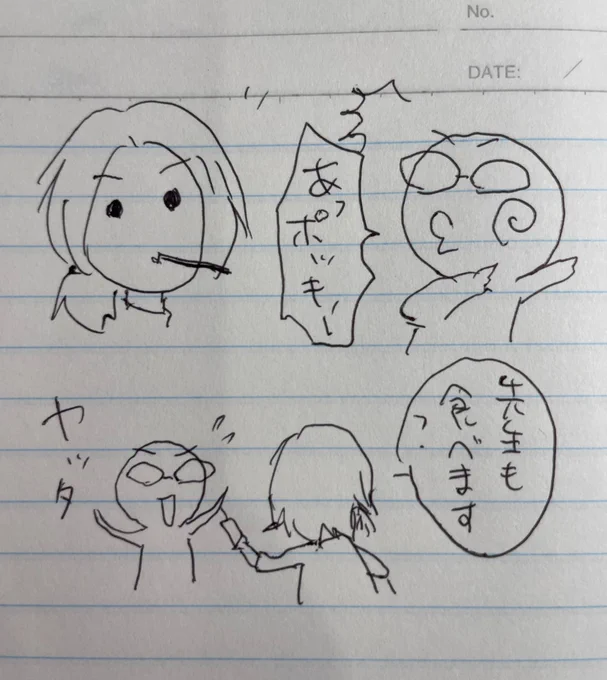 No.
DATE: /
あっポッキー
先生も
食べます
?
ヤッタ